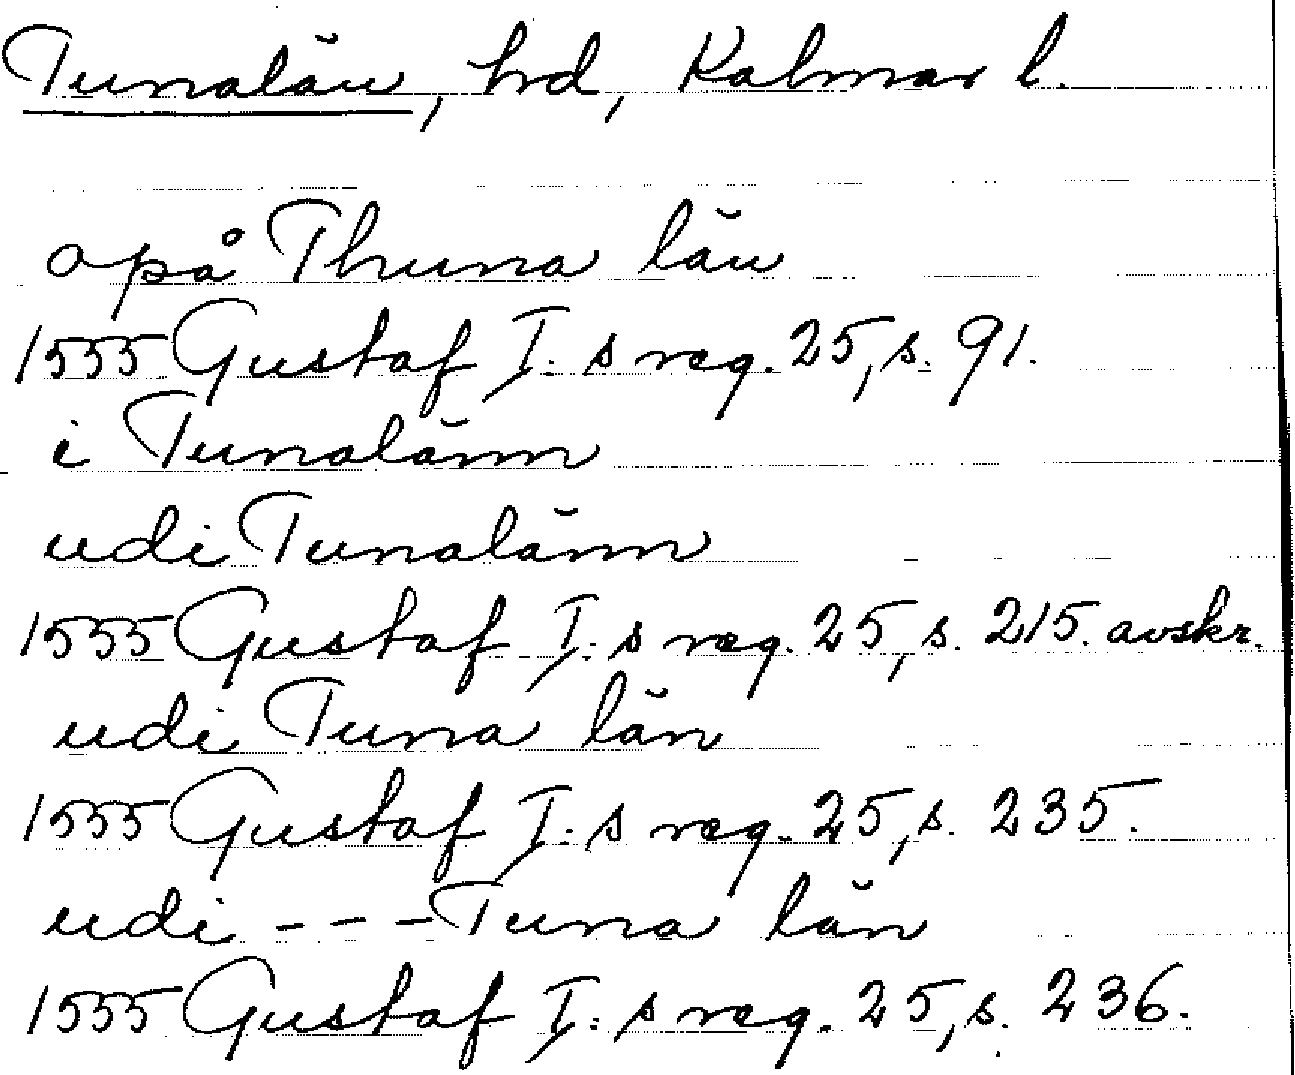 Tunalän, hrd, Kalmar l.
opå Thuna län
1555 Gustaf I:s reg. 25, s. 91.
i Tunalänn
udi Tunalänn
1555 Gustaf I:s reg. 25, s. 215. avskr.
udi Tuna län
1555 Gustaf I:s reg. 25, s. 235.
udi --- Tuna län
1555 Gustaf I:s reg. 25, s. 236.